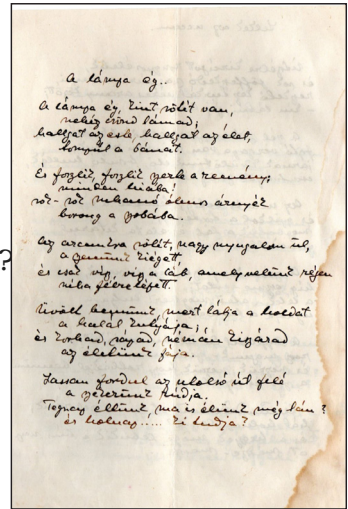 A lámpa ég..
A lámpa ég, kint sötét van,
nehéz csend támad;
hallgat az este, hallgat az élet,
a bánat.
És foszlik, foszlik perle a remény;
minden hiába!
suhanó álmos árnyék
borong a szobába.
Az arcunkra sötét, nagy nyugalom ül,
a kiégett
és csak víg, víg a láb, amely velünk régen
néha félrelépett.
Üvölt bennünk, mert látja a holdat
a halál kutyája!
és korhad, rozsad, némán kiszárad
az életünk fája.
Lassan fordul az utolsó út felé
a szekerünk rúdja.
Tegnap éltünk, ma is élünk még tán?
és holnap..... ki tudja?